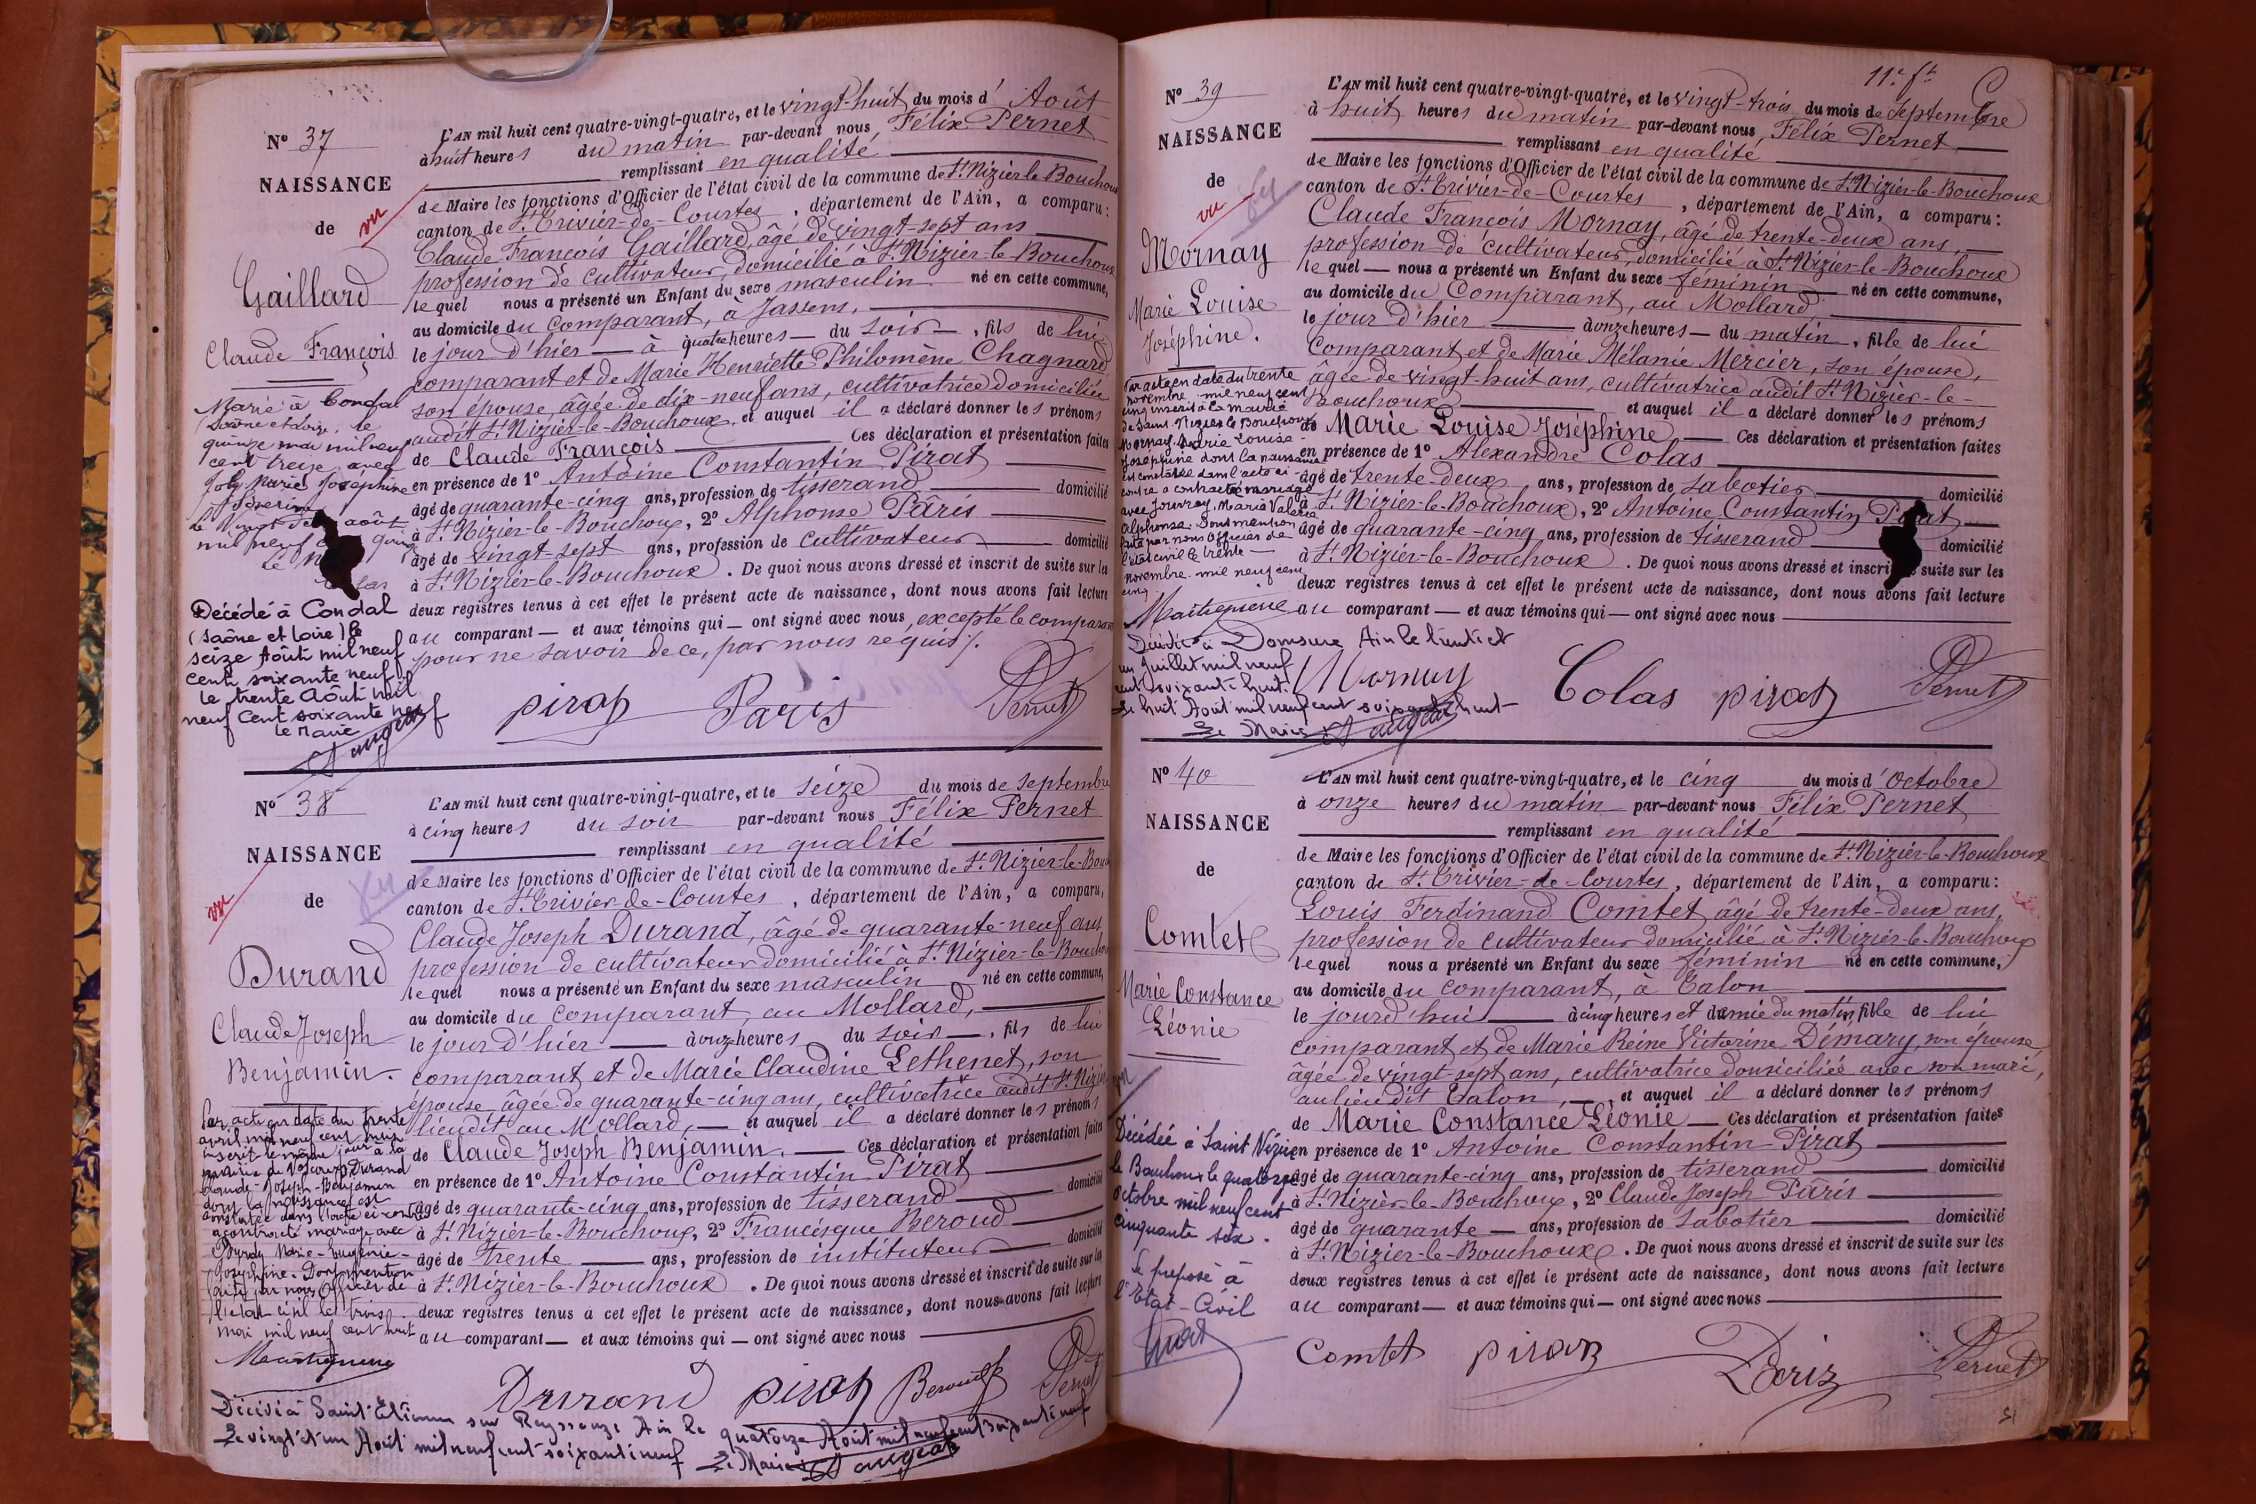 N° 37
NAISSANCE
de
vu
Gaillard
Claude François
Marié à Condal
(Saône et Loire) le
quinze mai mil neuf
cent treize avec
Joly Marie Josephine
août
mil neuf
Décédé à Condal
(Saône et Loire) le
seize Août mil neuf
cent soixante neuf
le trente Août mil
neuf cent soixante neuf
le Maire
L'AN mil huit cent quatre-vingt-quatre, et le vingt-huit du mois d' Août
à huit heures du matin par-devant nous Félix Pernet
remplissant en qualité
de Maire les fonctions d'Officier de l'état civil de la commune de St Nizier-le-Bouchoux
canton de St Trivier-de-Courtes, département de l'Ain, a comparu:
Claude François Gaillard, âgé de vingt-sept ans
profession de cultivateur, domicilié à St Nizier-le-Bouchoux
lequel nous a présenté un Enfant du sexe masculin né en cette commune,
au domicile du comparant, à Jassens,
le jour d'hier — à quatre heures — du soir —, fils de lui
comparant et de Marie Henriette Philomène Chagnard
son épouse, âgée de dix-neuf ans, cultivatrice domiciliée
audit St Nizier-le-Bouchoux, et auquel il a déclaré donner les prénoms
de Claude François — Ces déclaration et présentation faites
en présence de 1° Antoine Constantin Pirat
âgé de quarante-cinq ans, profession de tisserand domicilié
à St Nizier-le-Bouchoux, 2° Alphonse Pâris
âgé de vingt-sept ans, profession de cultivateur domicilié
à St Nizier-le-Bouchoux. De quoi nous avons dressé et inscrit de suite sur les
deux registres tenus à cet effet le présent acte de naissance, dont nous avons fait lecture
au comparant — et aux témoins qui — ont signé avec nous, excepté le comparant
pour ne savoir de ce, par nous requis/.
pirat Paris Pernet
N° 38
NAISSANCE
de
vu
Durand
Claude Joseph
Benjamin.
Par acte en date du trente
avril mil neuf cent huit
inscrit le même jour à la
mairie de Durand
Claude-Joseph-Benjamin
dont la naissance est
constatée dans l'acte ci-contre
a contracté mariage avec
Marie-Eugénie-
Joséphine. Dont mention
faite par nous Officier de
l'état-civil le trois
mai mil neuf cent huit
L'AN mil huit cent quatre-vingt-quatre, et le seize du mois de septembre
à cinq heures du soir par-devant nous Félix Pernet
remplissant en qualité
de Maire les fonctions d'Officier de l'état civil de la commune de St Nizier-le-Bouch
canton de St Trivier-de-Courtes, département de l'Ain, a comparu,
Claude Joseph Durand, âgé de quarante-neuf ans
profession de cultivateur domicilié à St Nizier-le-Bouchoux
lequel nous a présenté un Enfant du sexe masculin né en cette commune,
au domicile du comparant, au Mollard,
le jour d'hier — à onze heures du soir —, fils de lui
comparant et de Marie Claudine Lethenet, son
épouse âgée de quarante-cinq ans, cultivatrice audit St Nizier
lieudit au Mollard, — et auquel il a déclaré donner les prénoms
de Claude Joseph Benjamin. — Ces déclaration et présentation faites
en présence de 1° Antoine Constantin Pirat
âgé de quarante-cinq ans, profession de tisserand domicilié
à St Nizier-le-Bouchoux, 2° Francisque Beroud
âgé de trente — ans, profession de instituteur domicilié
à St Nizier-le-Bouchoux. De quoi nous avons dressé et inscrit de suite sur les
deux registres tenus à cet effet le présent acte de naissance, dont nous avons fait lecture
au comparant — et aux témoins qui — ont signé avec nous
Durand pirat Beroud Pernet
Décédé à Saint-Etienne sur Reyssouze Ain le quatorze Août mil neuf cent soixante neuf
Le vingt et un Août mil neuf cent soixante neuf Le Maire
11e ft
N° 39
NAISSANCE
de
vu
Mornay
Marie Louise
Joséphine.
Par acte en date du trente
novembre mil neuf cent
cinq inscrit à la mairie
de Saint-Nizier-le-Bouchoux
Mornay, Marie Louise-
Joséphine dont la naissance
est constatée dans l'acte ci-
contre a contracté mariage
avec Maria Valérie
Alphonse. Dont mention
faite par nous Officier de
l'état civil le trente
novembre mil neuf cent
cinq.
Décédée à Domsure Ain le trente et
un Juillet mil neuf
cent soixante-huit.
Le huit Août mil neuf cent soixante huit
Le Maire
L'AN mil huit cent quatre-vingt-quatre, et le vingt-trois du mois de septembre
à huit heures du matin par-devant nous Félix Pernet
remplissant en qualité
de Maire les fonctions d'Officier de l'état civil de la commune de St Nizier-le-Bouchoux
canton de St Trivier-de-Courtes, département de l'Ain, a comparu:
Claude François Mornay, âgé de trente-deux ans,
profession de cultivateur, domicilié à St Nizier-le-Bouchoux
lequel — nous a présenté un Enfant du sexe féminin — né en cette commune,
au domicile du Comparant, au Mollard,
le jour d'hier — à onze heures — du matin, fille de lui
Comparant et de Marie Mélanie Mercier, son épouse,
âgée de vingt-huit ans, cultivatrice audit St Nizier-le-
Bouchoux — et auquel il a déclaré donner les prénoms
de Marie Louise Joséphine — Ces déclaration et présentation faites
en présence de 1° Alexandre Colas
âgé de trente-deux ans, profession de sabotier domicilié
à St Nizier-le-Bouchoux, 2° Antoine Constantin Pirat
âgé de quarante-cinq ans, profession de tisserand domicilié
à St Nizier-le-Bouchoux. De quoi nous avons dressé et inscrit de suite sur les
deux registres tenus à cet effet le présent acte de naissance, dont nous avons fait lecture
au comparant — et aux témoins qui — ont signé avec nous
Mornay Colas pirat Pernet
N° 40
NAISSANCE
de
Comtet
Marie Constance
Léonie
Décédée à Saint Nizier
le Bouchoux le quatorze
octobre mil neuf cent
cinquante six.
Le préposé à
l'Etat-Civil
L'AN mil huit cent quatre-vingt-quatre, et le cinq du mois d'octobre
à onze heures du matin par-devant nous Félix Pernet
remplissant en qualité
de Maire les fonctions d'Officier de l'état civil de la commune de St Nizier-le-Bouchoux
canton de St Trivier-de-Courtes, département de l'Ain, a comparu:
Louis Ferdinand Comtet âgé de trente-deux ans,
profession de cultivateur domicilié à St Nizier-le-Bouchoux
lequel nous a présenté un Enfant du sexe féminin né en cette commune,
au domicile du comparant, à Talon
le jourd'hui — à cinq heures et demie du matin, fille de lui
comparant et de Marie Reine Victorine Démary, son épouse
âgée de vingt-sept ans, cultivatrice domiciliée avec son mari,
au lieudit Talon, —, et auquel il a déclaré donner les prénoms
de Marie Constance Léonie — Ces déclaration et présentation faites
en présence de 1° Antoine Constantin Pirat
âgé de quarante-cinq ans, profession de tisserand domicilié
à St Nizier-le-Bouchoux, 2° Claude Joseph Pâris
âgé de quarante — ans, profession de sabotier domicilié
à St Nizier-le-Bouchoux. De quoi nous avons dressé et inscrit de suite sur les
deux registres tenus à cet effet le présent acte de naissance, dont nous avons fait lecture
au comparant — et aux témoins qui — ont signé avec nous
Comtet pirat Pernet